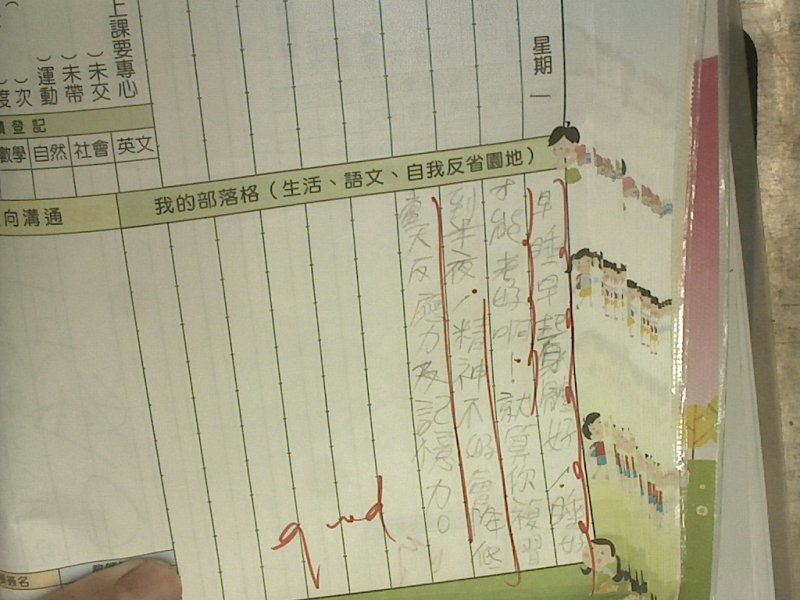 星期一
上課要專心
）未交
）未帶
）運動
次
登記
數學 自然 社會 英文
我的部落格（生活、語文、自我反省園地）
向溝通
早睡早起身體好！睡好
才能考好啊！就算你複習
到半夜！精神不好會降低
當天反應力及記憶力。
good
簽名